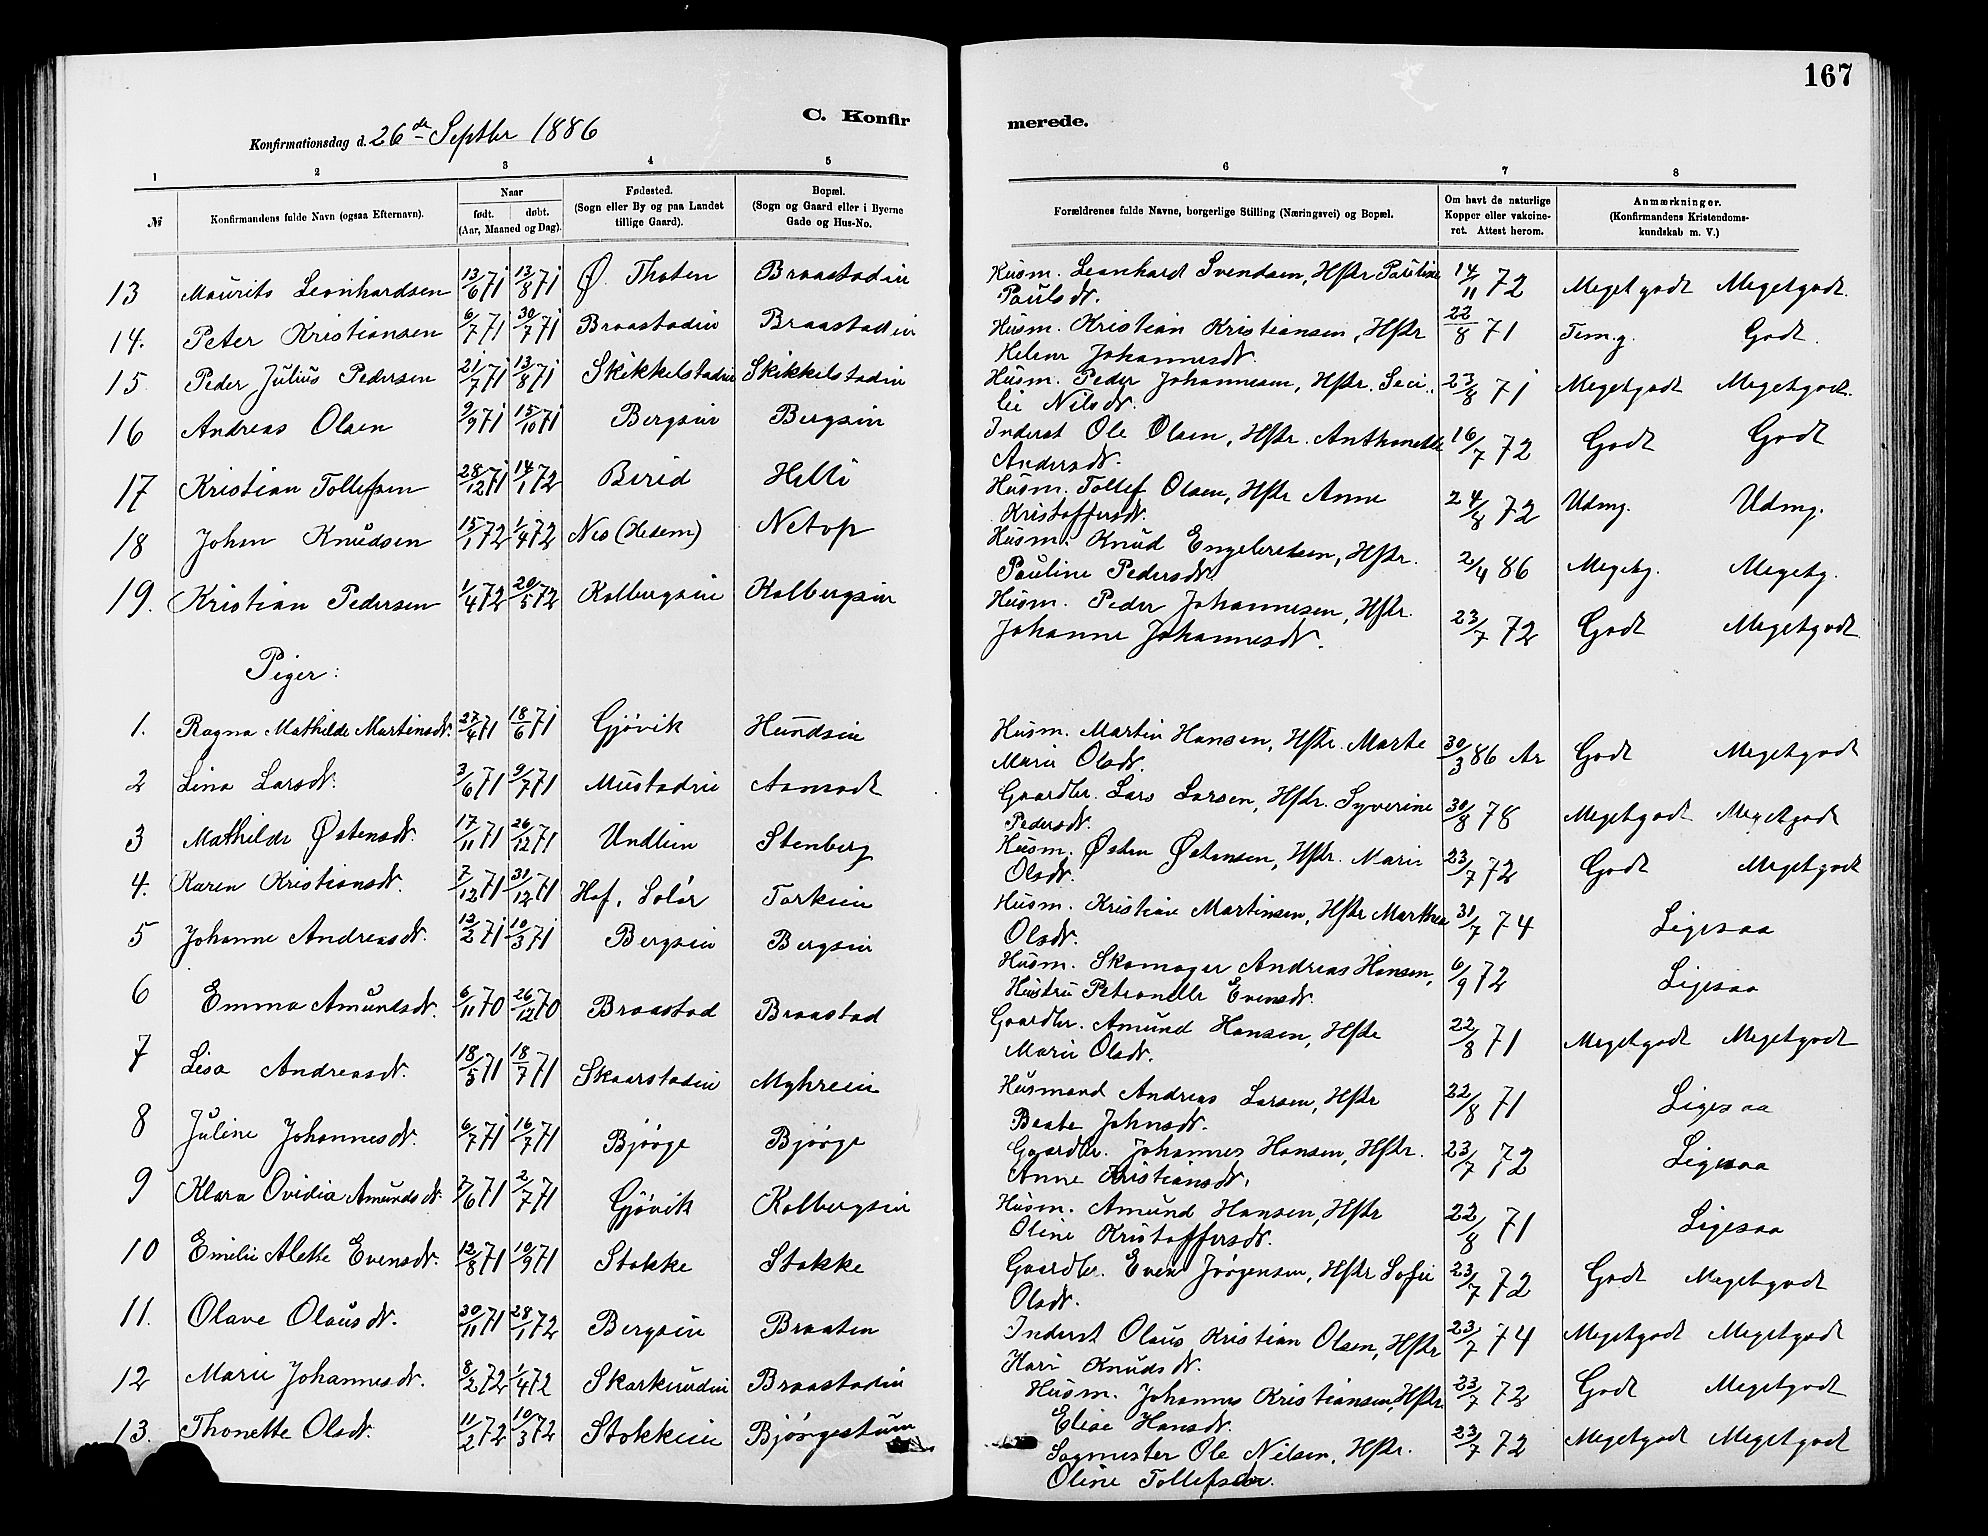 167
C. Konfirmerede.
Konfirmationsdag d. 26de Septbr 1886
1 2 3 4 5 6 7 8
№ Konfirmandens fulde Navn (ogsaa Efternavn). Naar født. døbt. (Aar, Maaned og Dag). Fødested. (Sogn eller By og paa Landet tillige Gaard). Bopæl. (Sogn og Gaard eller i Byerne Gade og Hus-No. Forældrenes fulde Navne, borgerlige Stilling (Næringsvei) og Bopæl. Om havt de naturlige Kopper eller vakcineret. Attest herom. Anmærkninger. (Konfirmandens Kristendomskundskab m. V.)
13 Maurits Leonhardsen 13/6 71 13/8 71 Ø. Thoten Braastadeie Husm. Leonhard Svendsen, Hstr Pauline 14/11 72 Megetgodt Megetgodt.
Paulsdt.
14. Peter Kristiansen 6/7 71 30/7 71 Braastadeie Braastadeie Husm. Kristian Kristiansen, Hstr 22/8 71 Tem.g. Godt.
Helene Johannesdt.
15 Peder Julius Pedersen 21/7 71 13/8 71 Skikkelstadeie Skikkelstadeie Husm. Peder Johannesen, Hstr. Seci- 23/8 71 Megetgodt Megetgodt.
lie Nilsdt.
16 Andreas Olsen 9/9 71 15/10 71 Bergseie Bergseie Inderst Ole Olsen, Hstr. Anthonette 16/7 72 Godt Godt
Andersdt.
17 Kristian Tollefsen 28/12 71 14/1 72 Birid Helli Husm. Tollef Olsen, Hstr Anne 24/8 72 Udmg. Udmg.
Kristoffersdt.
18 Johan Knudsen 15/1 72 1/4 72 Nes (Hedem) Netop Husm. Knud Engebretsen, Hstr. 2/4 86 Megetg. Megetg.
Pauline Pedersdt.
19. Kristian Pedersen 1/4 72 20/5 72 Kolbergseie Kolbergseie Husm. Peder Johannesen, Hstr. 23/7 72 Godt Megetgodt
Johanne Johannesdt.
Piger:
1. Ragna Mathilde Martinsdt. 27/4 71 18/6 71 Gjøvik Hundseie Husm. Martin Hansen, Hstr. Marte 30/3 86 Ar Godt Megetgodt
Marie Olsdt.
2 Lina Larsdt. 3/6 71 9/7 71 Mustadeie Aamodt Gaardbr. Lars Larsen, Hstr. Syverine 30/8 78 Megetgodt Megetgodt
Pedersdt.
3 Mathilde Østensdt. 17/11 71 26/12 71 Undlien Stenberg Husm. Østen Østensen, Hstr. Marie 23/7 72 Godt Megetgodt
Olsdt.
4. Karen Kristiansdt. 7/12 71 31/12 71 Hof, Solør Torkeie Husm. Kristian Martinsen, Hstr Marthea 31/7 74 Ligesaa
Olsdt.
5 Johanne Andreasdt. 12/2 71 10/3 71 Bergseie Bergseie Husm. Skomager Andreas Hansen, 6/9 72 Ligesaa
Hustru Petronelle Evensdt.
6 Emma Amundsdt. 6/11 70 26/12 70 Braastad Braastad Gaardbr. Amund Hansen, Hstr 22/8 71 Megetgodt Megetgodt
Marie Olsdt.
7 Lisa Andreasdt. 18/5 71 18/7 71 Skaarstadeie Myhreeie Husmand Andreas Larsen, Hstr 22/8 71 Ligesaa
Beate Johnsdt.
8 Juline Johannesdt. 6/7 71 16/7 71 Bjørge Bjørge Gaardbr. Johannes Hansen, Hstr. 23/7 72 Ligesaa
Anne Kristiansdt.
9 Klara Ovidia Amundsdt. 7/6 71 2/7 71 Gjøvik Kolbergseie Husm. Amund Hansen, Hstr 22/8 71 Ligesaa
Oline Kristoffersdt.
10 Emilie Alette Evensdt. 12/8 71 10/9 71 Stokke Stokke Gaardbr. Even Jørgensen, Hstr Sofie 23/7 72 Godt Megetgodt
Olsdt.
11. Olave Olausdt. 30/11 71 28/1 72 Bergseie Braaten Inderst Olaus Kristian Olsen, Hstr 23/7 74 Megetgodt Megetgodt
Kari Knudsdt.
12 Marie Johannesdt. 8/2 72 1/4 72 Skarkundeie Braastadeie Husm. Johannes Kristiansen, Hstr 23/7 72 Godt Megetgodt
Elise Hansdt.
13. Thonette Olsdt. 11/2 72 10/3 72 Stokkeeie Bjørgestuen Sagmester Ole Nilsen, Hstr. 23/7 72 Megetgodt Megetgodt
Oline Tollefsdtr.